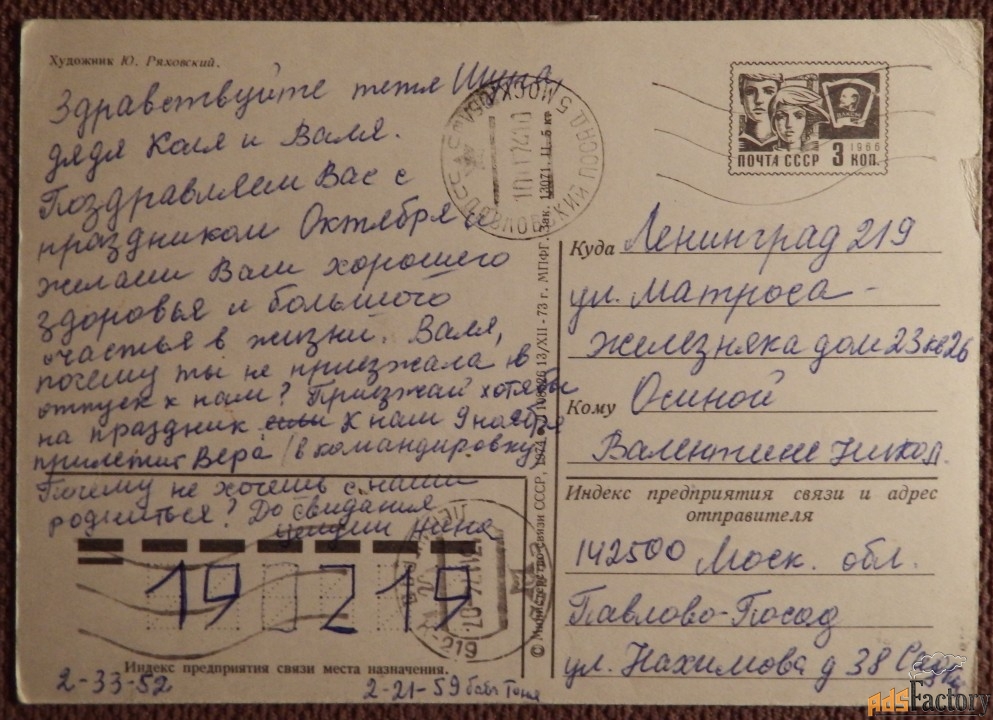 Художник Ю. Ряховский.
Здравствуйте тетя Шура,
дядя Коля и Валя.
Поздравляем Вас с
праздником Октября и
желаем Вам хорошего
здоровья и большого
счастья в жизни. Валя,
почему ты не приезжала в
отпуск к нам? Приезжай хотя бы
на праздник К нам 9 ноября
прилетит Вера (в командировку)
Почему не хочешь с нами
родниться? До свидания
Нина
19 219
Индекс предприятия связи места назначения.
2-33-52
2-21-59 баба Тоня
© Министерство связи СССР, 1974 13/XII - 73 г. МПФГ. Зак. 13071. Ц. 5 к.
ПОЧТА СССР 3 КОП.
1966
Куда Ленинград 219
ул. Матроса-
Железняка дом 23 кв 26
Кому Осиной
Валентине Никол.
Индекс предприятия связи и адрес
отправителя
142500 Моск. обл.
Павлово-Посад
ул. Нахимова д 38
AdsFactory